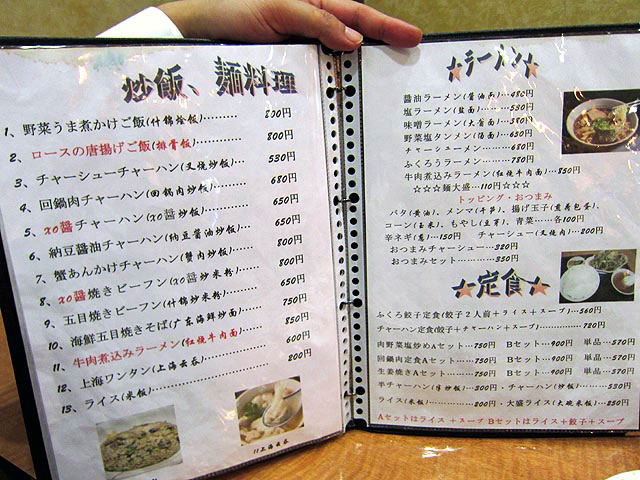 炒飯、麺料理
1、野菜うま煮かけご飯(什锦烩饭)……… 800円
2、ロースの唐揚げご飯(排骨饭)……… 800円
3、チャーシューチャーハン(叉烧炒饭)…… 530円
4、回鍋肉チャーハン(回锅肉炒饭)…… 680円
5、XO醤チャーハン(XO醤炒饭)…… 650円
6、納豆醤油チャーハン(納豆酱油炒饭)…… 650円
7、蟹あんかけチャーハン(蟹肉炒饭)…… 800円
8、XO醤焼きビーフン(XO醤炒米粉)…… 650円
9、五目焼きビーフン(什锦炒米粉)…… 750円
10、海鮮五目焼きそば(广东海鲜炒面)…… 850円
11、牛肉煮込みラーメン(红烧牛肉面)…… 600円
12、上海ワンタン(上海云吞)…… 200円
13、ライス(米饭)
11上海云吞
★ラーメン★
醤油ラーメン(酱油面)…480円
塩ラーメン(盐面)……530円
味噌ラーメン(大酱面)…380円
野菜塩タンメン(汤面)…630円
チャーシューメン……680円
ふくろうラーメン……780円
牛肉煮込みラーメン(红烧牛肉面)…850円
☆☆☆麺大盛…110円☆☆☆
トッピング・おつまみ
バタ(黄油)、メンマ(干笋)、揚げ玉子(煎荷包蛋)、
コーン(玉米)、もやし(豆芽)、青菜……各100円
辛ネギ(葱)…150円 チャーシュー(叉烧肉)…200円
おつまみチャーシュー…320円
おつまみセット………350円
★定食★
ふくろ餃子定食(餃子2人前+ライス+スープ)…560円
チャーハン定食(餃子+チャーハン+スープ)………720円
肉野菜塩炒めAセット……750円 Bセット…900円 単品…570円
回鍋肉定食Aセット………750円 Bセット…900円 単品…570円
生姜焼きAセット…………750円 Bセット…900円 単品…570円
半チャーハン(半炒饭)…300円・チャーハン(炒饭)…530円
ライス(米饭)………200円・大盛ライス(大碗米饭)…250円
Aセットはライス+スープ Bセットはライス+餃子+スープ